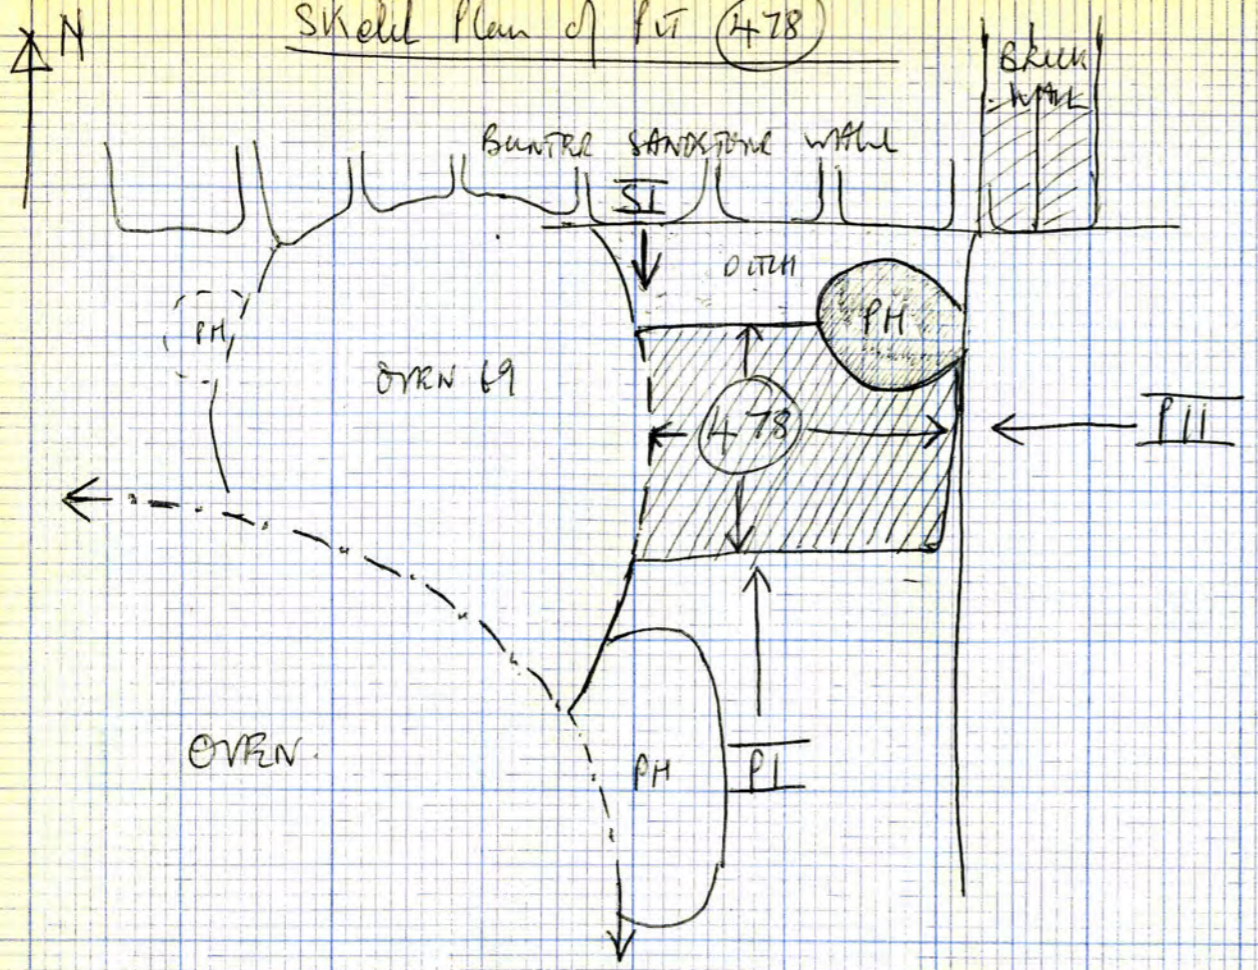 N
Sketch Plan of Pit 478
BRICK
WALL
BUNTER SANDSTONE WALL
SI
DITCH
PH
PH
OVEN 69
478
PIII
OVEN.
PH
PI